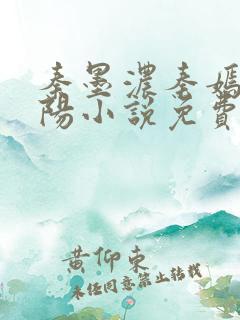 秦墨濃秦嫣
陽小說免費
黃仰東
未經同意禁止轉載